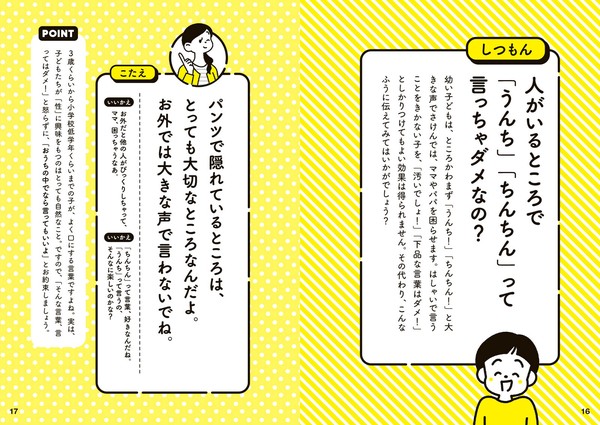 しつもん
人がいるところで
「うんち」「ちんちん」って
言っちゃダメなの?
幼い子どもは、ところかまわず「うんち!」「ちんちん!」と大
きな声でさけんでは、ママやパパを困らせます。はしゃいで言う
ことをきかない子を、「汚いでしょ!」「下品な言葉はダメ!」
としかりつけてもよい効果は得られません。その代わり、こんな
ふうに伝えてみてはいかがでしょう?
16
こたえ
パンツで隠れているところは、
とっても大切なところなんだよ。
お外では大きな声で言わないでね。
いいかえ
お外だと他の人がびっくりしちゃって、
ママ、困っちゃうなあ。
いいかえ
「ちんちん」って言葉、好きなんだね。
「うんち」って言うの、
そんなに楽しいのかな?
POINT
3歳くらいから小学校低学年くらいまでの子が、よく口にする言葉ですよね。実は、
子どもたちが「性」に興味をもつのはとっても自然なこと。ですので、「そんな言葉、言
ってはダメ!」と怒らずに、「おうちの中でなら言ってもいいよ」とお約束しましょう。
17